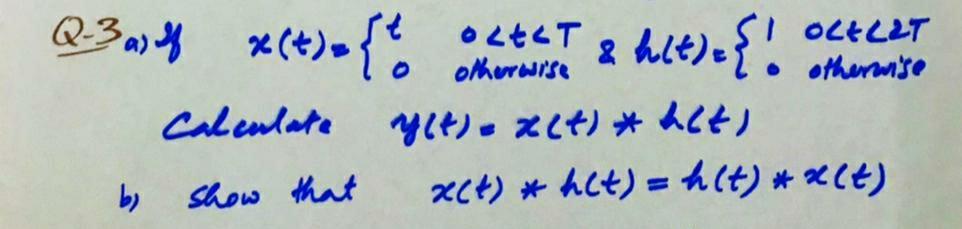 Q-3 a) If x(t) = { t 0<t<T & h(t) = { 1 0<t<2T
0 otherwise 0 otherwise
Calculate y(t) = x(t) * h(t)
b) Show that x(t) * h(t) = h(t) * x(t)